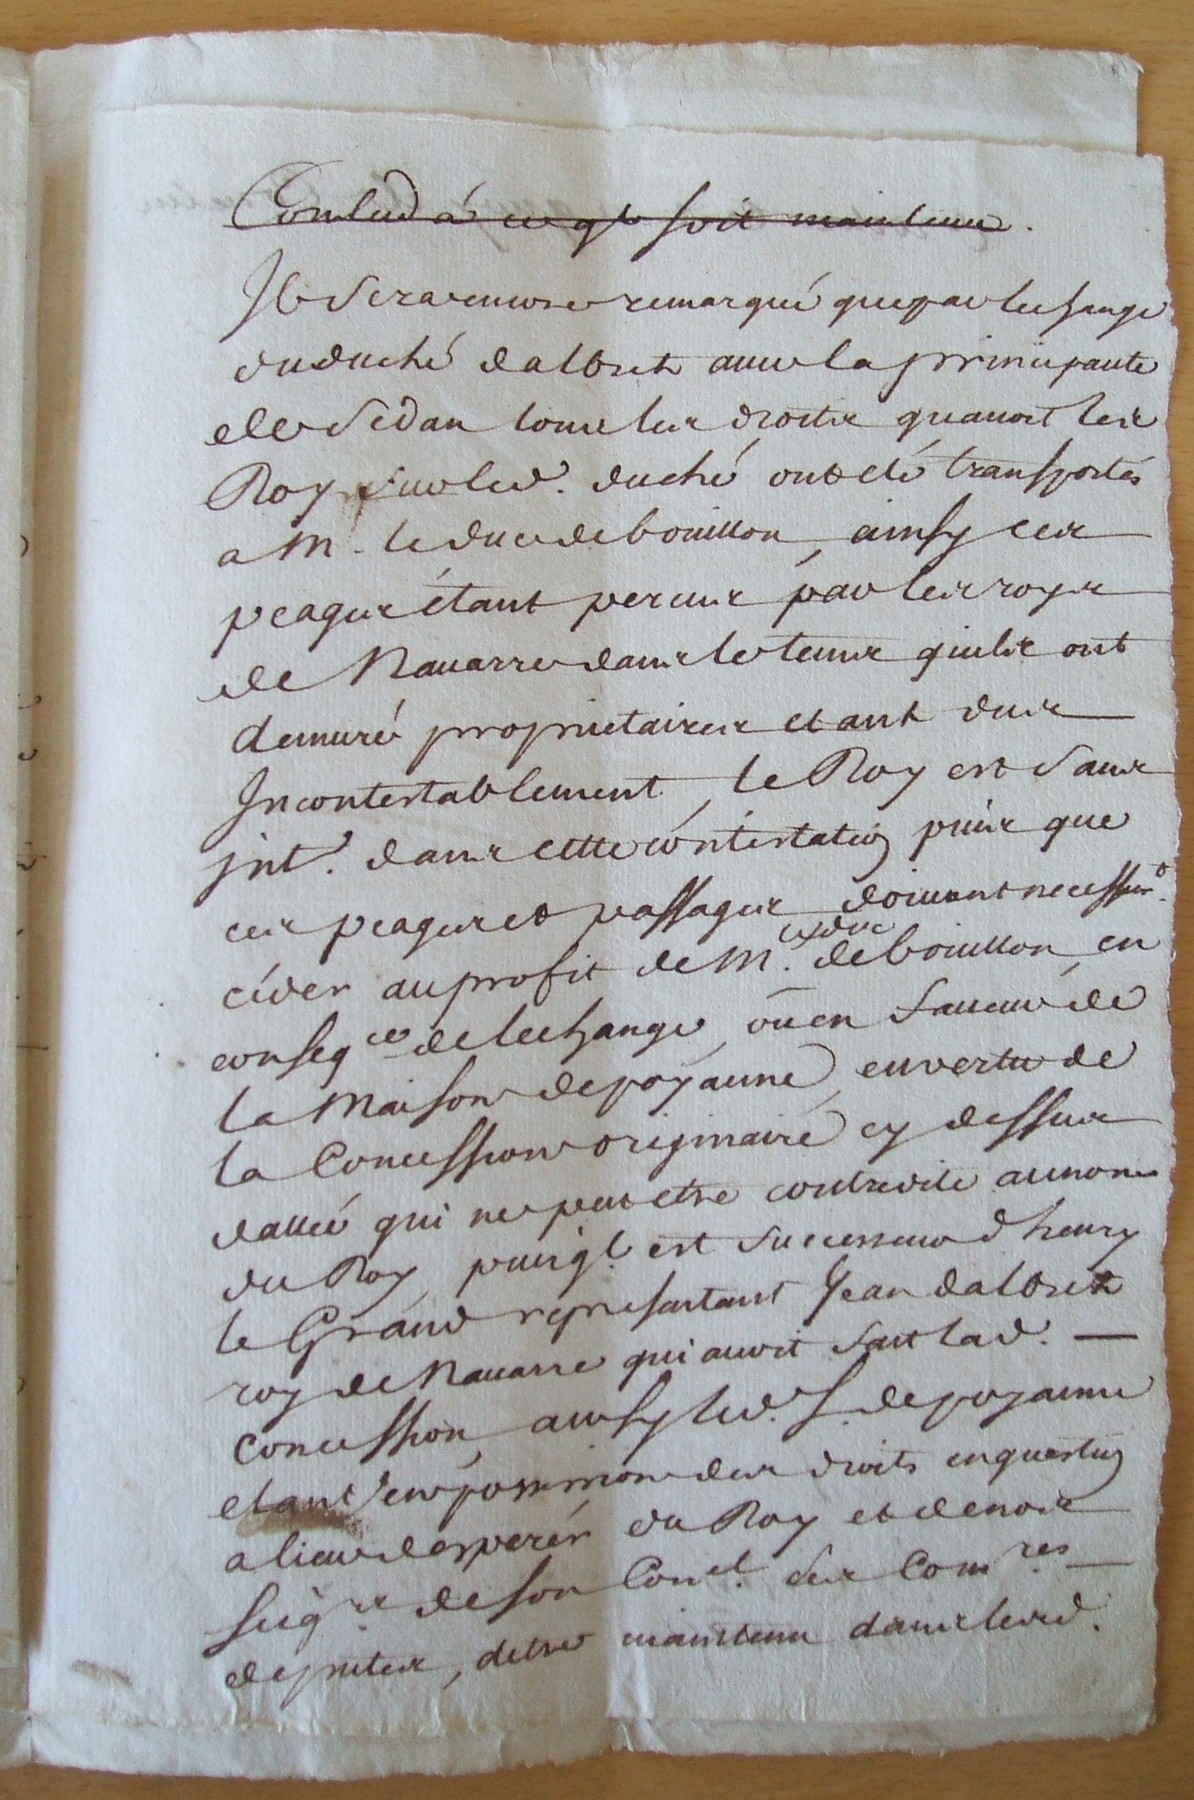 Conclud á ce ql soit maintenu.
Il sera encore remarqué que par lechange
du duché dalbret auec la principauté
de Sedan tous les droits quauoit les
Roy sur led. duché ont eté transportés
a M. le duc de bouillon, ainsy ces
peages étant percus par les roys
de Nauarre dans le tems quils ont
demuré proprietaires etant dus
Incontestablement, le Roy est sans
jnt. dans cette contestation puis que
ces peages et passages doiuent necessairt.
céder au profit de M. le duc de bouillon en
conseqce de lechange, ou en faueur de
la Maison de poyanne, en vertu de
la Concession originaire cy dessus
dattée qui ne peut etre contredite au nom
du Roy, puisql. est successeur dhenry
le Grand representant Jean dalbret
roy de Nauarre qui auoit fait lad.
concession, ainsy led. S. de poyanne
etant en possession des droits en question
a lieu desperér du Roy et de nos
seigrs de son Conel. les Comres
deputés, detre maintenu dans lesd.